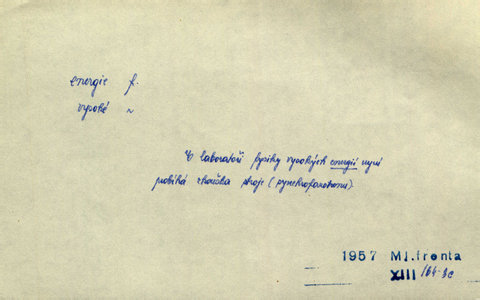 energie f.
vysoké ~
V laboratoři fysiky vysokých energií nyní
probíhá zkouška stroje (synchrofasotronu).
1957 Ml.fronta
XIII /64.3c